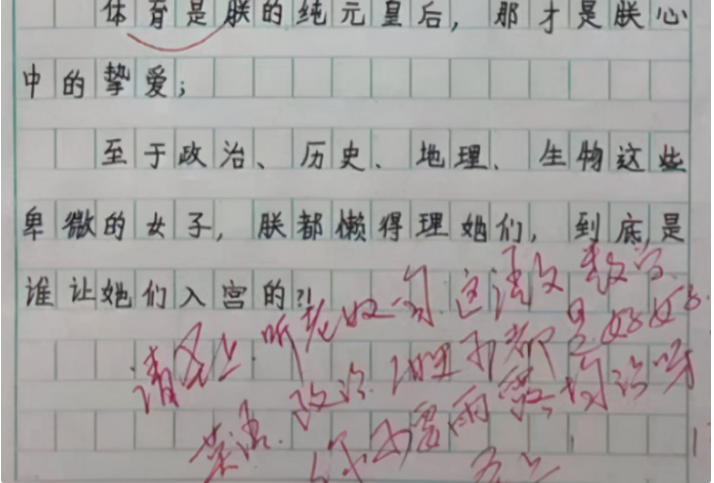 体育是朕的纯元皇后，那才是朕心
中的挚爱；
至于政治、历史、地理、生物这些
卑微的女子，朕都懒得理她们，到底是
谁让她们入宫的?!
请皇上听老奴一句，这语文、数学、
英语、政治、地理可都是好好
你要雨露均沾呀
皇上